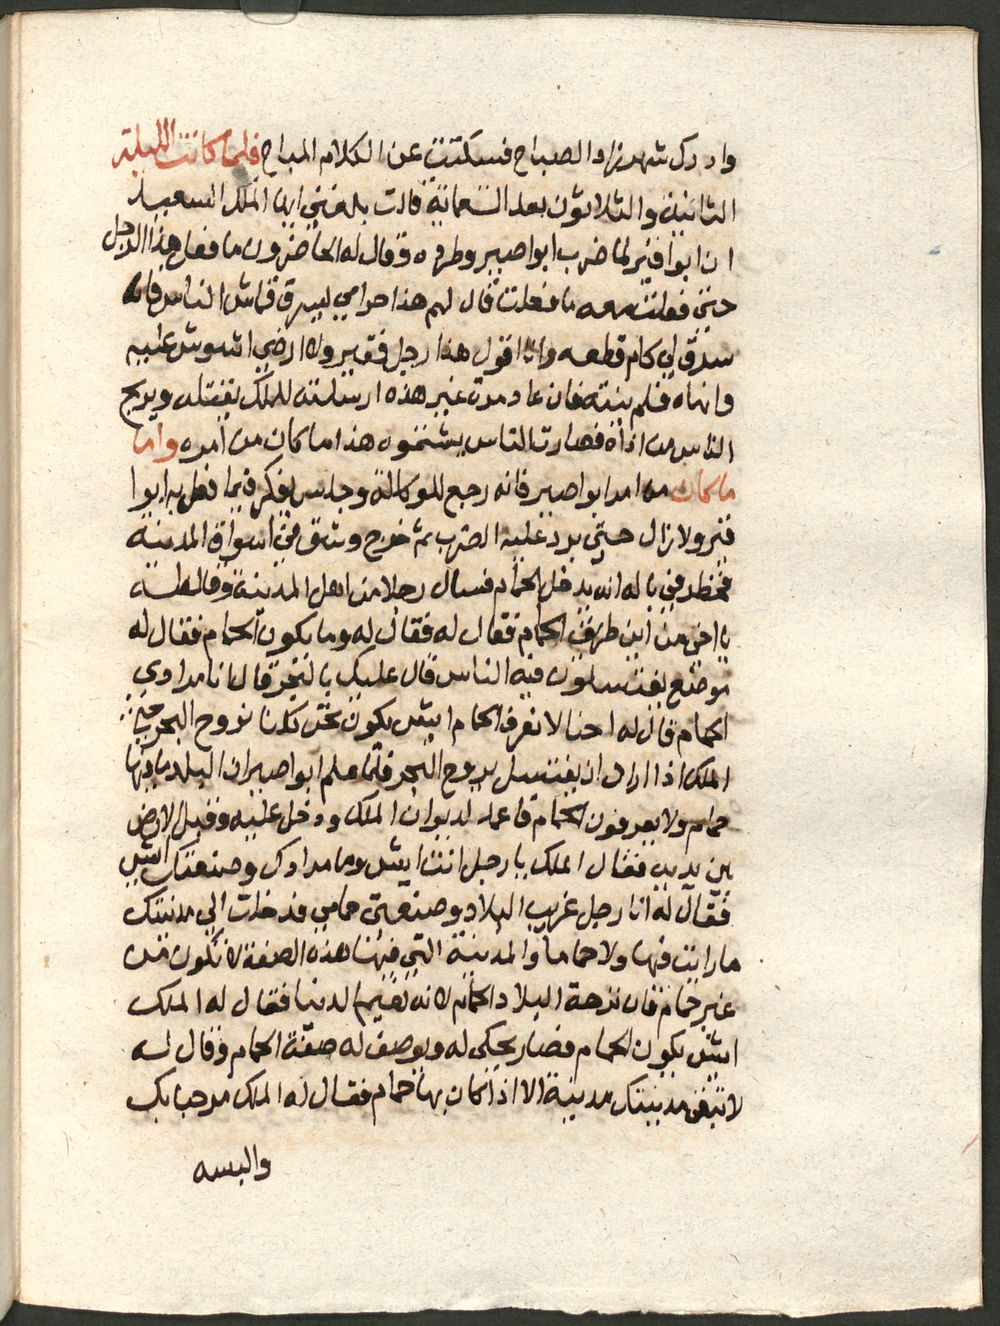 وادرك شهرزاد الصباح فسكتت عن الكلام المباح فلما كانت الليلة
الثانية والثلاثون بعد التسعماية قالت بلغني ايها الملك السعيد
ان ابوا قير لما ضرب ابوا صير وطرده وقال له الحاضرون ما فعل هذا الرجل
حتى فعلت معه ما فعلت قال لهم هذا حرامي ليسرق قماش الناس فانه
سرق لي كام قطعه وانا اقول هذا رجل فقير ولا ارضي اشوش عليه
وانهاه فلم ينته فان عاد مرة غير هذه ارسلته للملك يقتله ويريح
الناس من اذاه فصارت الناس يشتموه هذا ما كان من امره واما
ما كان من امر ابوا صير فانه رجع للوكالة وجلس يفكر فيما فعل به ابوا
قير ولا زال حتى برد عليه الضرب ثم خرج وشق في اسواق المدينة
فخطر في باله انه يدخل الحمام فسال رجلا من اهل المدينة وقال له
يا اخي من اين طريق الحمام فقال له وما يكون الحمام فقال له
موضع يغتسلون فيه الناس قال عليك بالبحر قال انا مرادي
الحمام قال له احنا لا نعرف الحمام ايش يكون نحن كلنا نروح البحر حتى
الملك اذا اراد ان يغتسل يروح البحر فلما علم ابوا صير ان البلد ما فيها
حمام ولا يعرفون الحمام قام عمد لديوان الملك ودخل عليه وقبل الارض
بين يديه فقال الملك يا رجل انت ايش وما مرادك وصنعتك ايش
فقال له انا رجل غريب البلاد وصنعتي حمامي فدخلت الي مدينتك
ما رايت فيها ولا حماما والمدينة التي فيها هذه الصفة لا تكون من
غير حمام فان نزهة البلاد الحمام لانه نعيم الدنيا فقال له الملك
ايش يكون الحمام فصار يحكي له ويوصف له صفة الحمام وقال له
لا تبقى مدينتك مدينة الا اذا كان بها حمام فقال له الملك مرحبا بك
والبسه